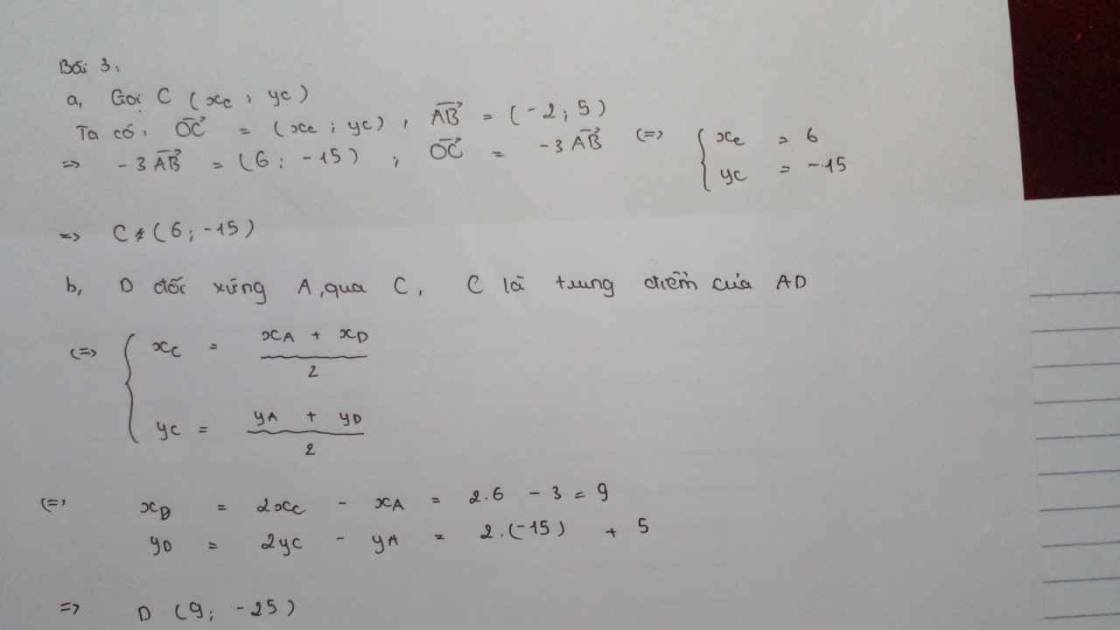 Bài 3:
a, Gọi C (xc ; yc)
Ta có: OC = (xc ; yc) , AB = (-2; 5)
=> -3AB = (6; -15) , OC = -3AB <=> { xc = 6
yc = -15
=> C (6; -15)
b, D đối xứng A, qua C, C là trung điểm của AD
<=> { xC = (xA + xD)/2
yC = (yA + yD)/2
<=> xD = 2xC - xA = 2.6 - 3 = 9
yD = 2yC - yA = 2.(-15) + 5
=> D (9; -25)